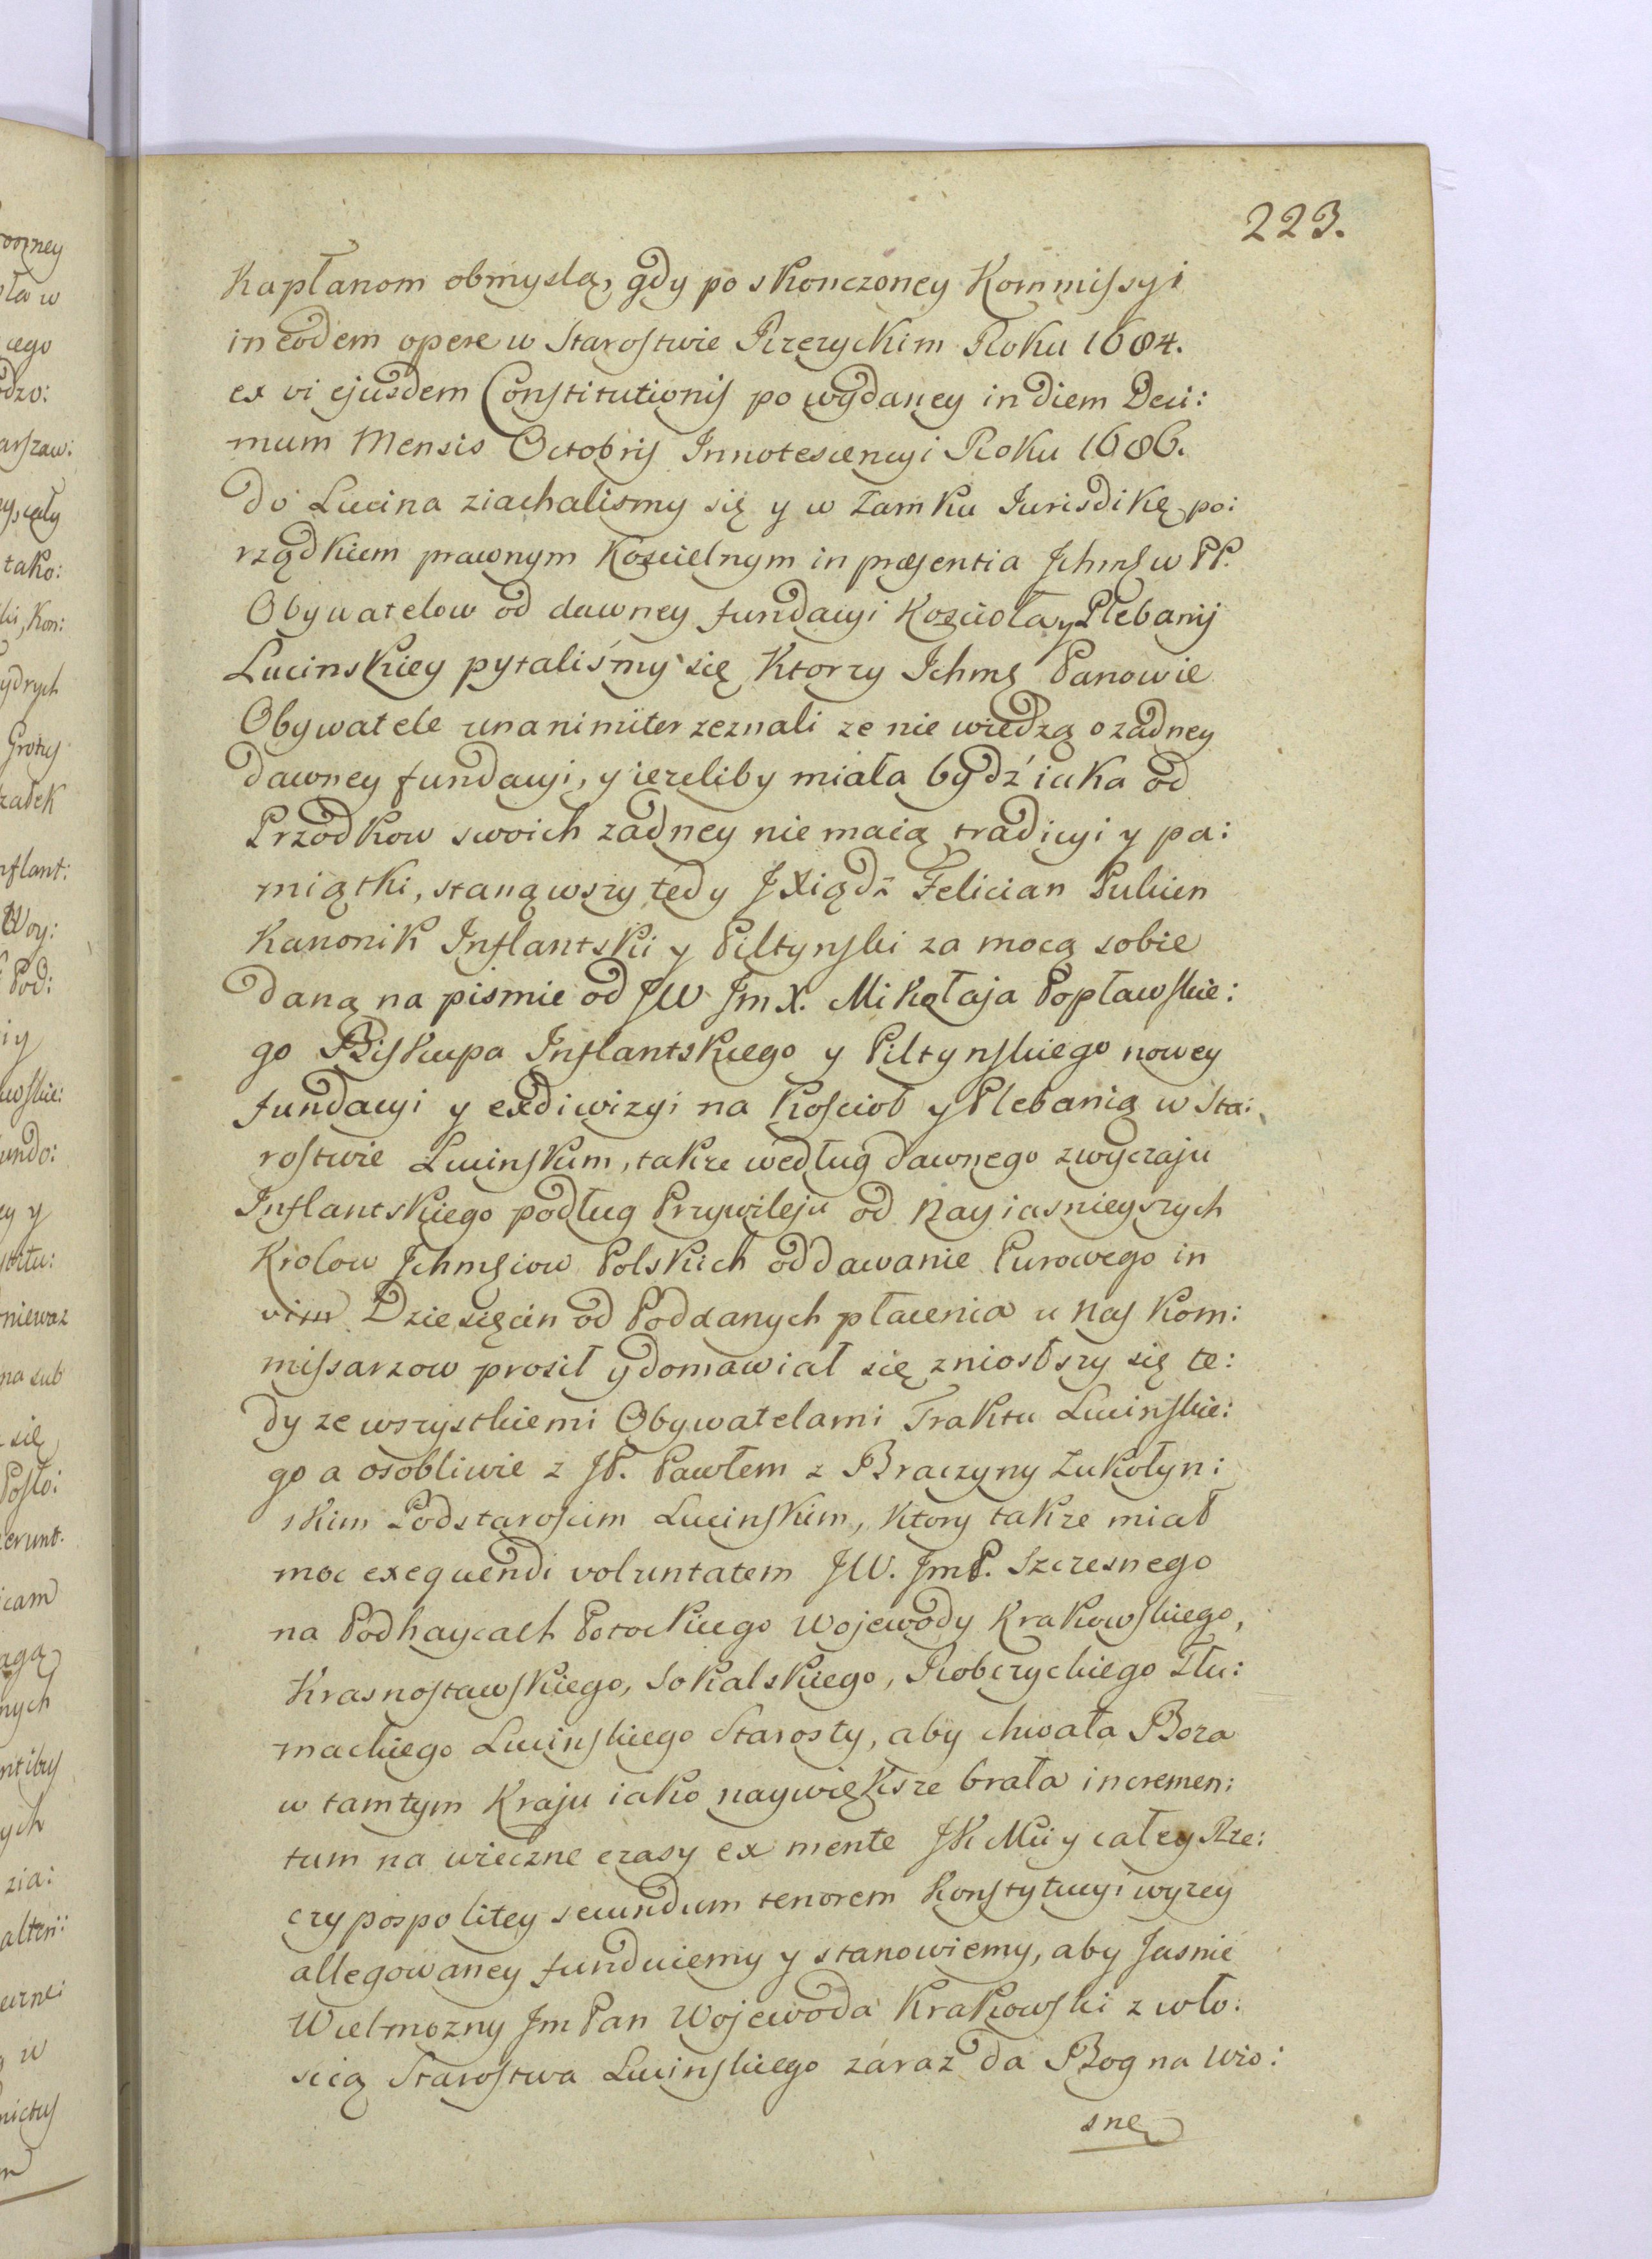 223.
Kapłanom obmyslą, gdy po skonczoney Kommissyi
in eodem opere w Starostwie Rzezyckim Roku 1684.
ex vi ejusdem Constitutionis po wydaney in diem Deci:
mum Mensis Octobris Innotescencyi Roku 1686.
do Lucina ziachalismy się y w Zamku Jurisdikę po:
rządkiem prawnym Koscielnym in præsentia Jchmś w PP.
Obywatelow od dawney fundacyi Koscioła y Plebanij
Lucinskiey pytaliśmy się Ktorzy Jchmś Panowie
Obywatele unanimiter zeznali ze nie wiedzą o zadney
dawney fundacyi, y iezeliby miała bydź iaka od
Przodkow swoich zadney nie maią tradicyi y pa:
miątki, stanąwszy tedy JXiądz Felician Pulien
Kanonik Inflantski y Piltynski za mocą sobie
daną na pismie od JW JmX. Mikołaja Popławskie:
go Biskupa Inflantskiego y Piltynskiego nowey
fundacyi y exdiwizyi na Kosciol y Plebanią w Sta:
rostwie Lucinskim, takze według dawnego zwyczaju
Inflantskiego podług Przywileju od Nayiasnieyszych
Krolow Jchmściow Polskich oddawanie Purowego in
vim Dziesięcin od Poddanych płacenia u Nas Kom:
missarzow prosił y domawiał się zniosłszy się te:
dy ze wszystkiemi Obywatelami Traktu Lucinskie:
go a osobliwie z JP. Pawłem z Braczyny Zukołyn:
skim Podstaroscim Lucinskim, Ktory takze miał
moc exequendi voluntatem JW. JmP. Szczesnego
na Podhaycach Potockiego Wojewody Krakowskiego,
Krasnostawskiego, Sokalskiego, Robczyckiego Tłu:
mackiego Lucinskiego Starosty, aby chwała Boza
w tamtym Kraju iako naywiększe brała incremen:
tum na wieczne czasy ex mente JK Mci y całey Rze:
czypospolitey secundum tenorem Konstytucyi wyzey
allegowaney funduiemy y stanowiemy, aby Jasnie
Wielmozny Jm Pan Wojewoda Krakowski z wło:
scią Starostwa Lucinskiego zaraz da Bog na Wio:
snę